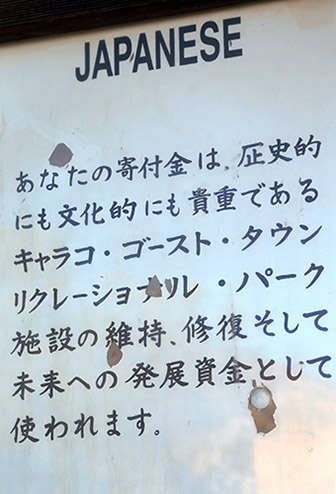 JAPANESE
あなたの寄付金は、歴史的
にも文化的にも貴重である
キャラコ・ゴースト・タウン
リクレーショナル・パーク
施設の維持、修復そして
未来への発展資金として
使われます。